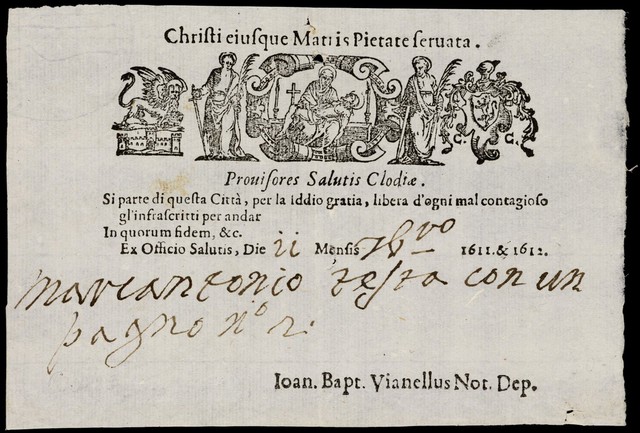 Christi eiusque Matris Pietate seruata.
C. C.
Prouiſores Salutis Clodiæ.
Si parte di queſta Città, per la Iddio gratia, libera d'ogni mal contagioſo
gl'infraſcritti per andar
In quorum fidem, &c.
Ex Officio Salutis, Die ii Menſis 1611. & 1612.
Marcantonio testa con un
pagno nº 2:
Ioan. Bapt. Vianellus Not. Dep.